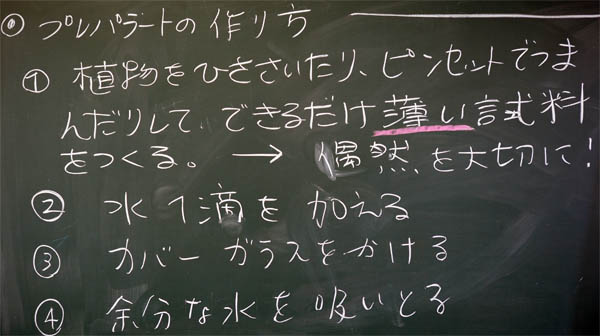 ◎ プレパラートの作り方
① 植物をひきさいたり、ピンセットでつま
んだりして、できるだけ薄い試料
をつくる。 → 偶然を大切に!
② 水1滴を加える
③ カバーガラスをかける
④ 余分な水を吸いとる